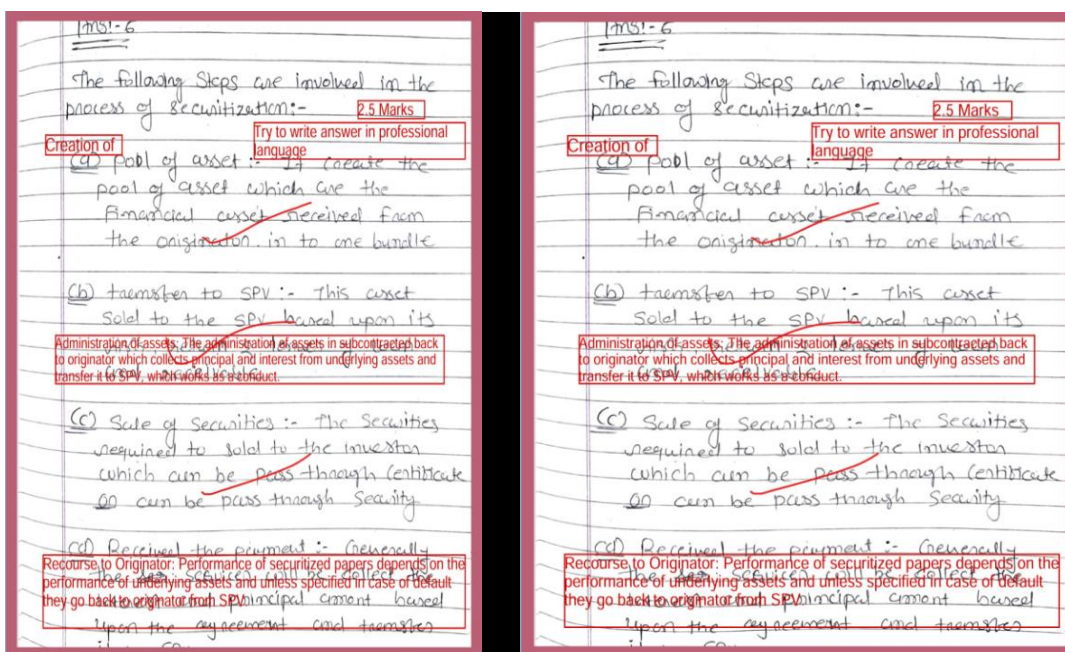 Ans:- 6
The following Steps are involved in the
process of securitization:-
2.5 Marks
Try to write answer in professional
language
Creation of
(a) pool of asset :- It create the
pool of asset which are the
Financial asset received from
the originator. in to one bundle
(b) taemsfer to SPV :- This asset
sold to the SPV based upon its
Administration of assets: The administration of assets in subcontracted back
to originator which collects principal and interest from underlying assets and
transfer it to SPV, which works as a conduct.
(c) Sale of Securities :- The Securities
required to sold to the investor
which can be Pass through Certificate
can be pass through Security
(d) Received the payment :- Generally
Recourse to Originator: Performance of securitized papers depends on the
performance of underlying assets and unless specified in case of default
they go back to originator from SPV
principal amont based
upon the agreement and taemsfer
Ans:- 6
The following Steps are involved in the
process of securitization:-
2.5 Marks
Try to write answer in professional
language
Creation of
(a) pool of asset :- It create the
pool of asset which are the
Financial asset received from
the originator. in to one bundle
(b) taemsfer to SPV :- This asset
sold to the SPV based upon its
Administration of assets: The administration of assets in subcontracted back
to originator which collects principal and interest from underlying assets and
transfer it to SPV, which works as a conduct.
(c) Sale of Securities :- The Securities
required to sold to the investor
which can be Pass through Certificate
can be pass through Security
(d) Received the payment :- Generally
Recourse to Originator: Performance of securitized papers depends on the
performance of underlying assets and unless specified in case of default
they go back to originator from SPV
principal amont based
upon the agreement and taemsfer